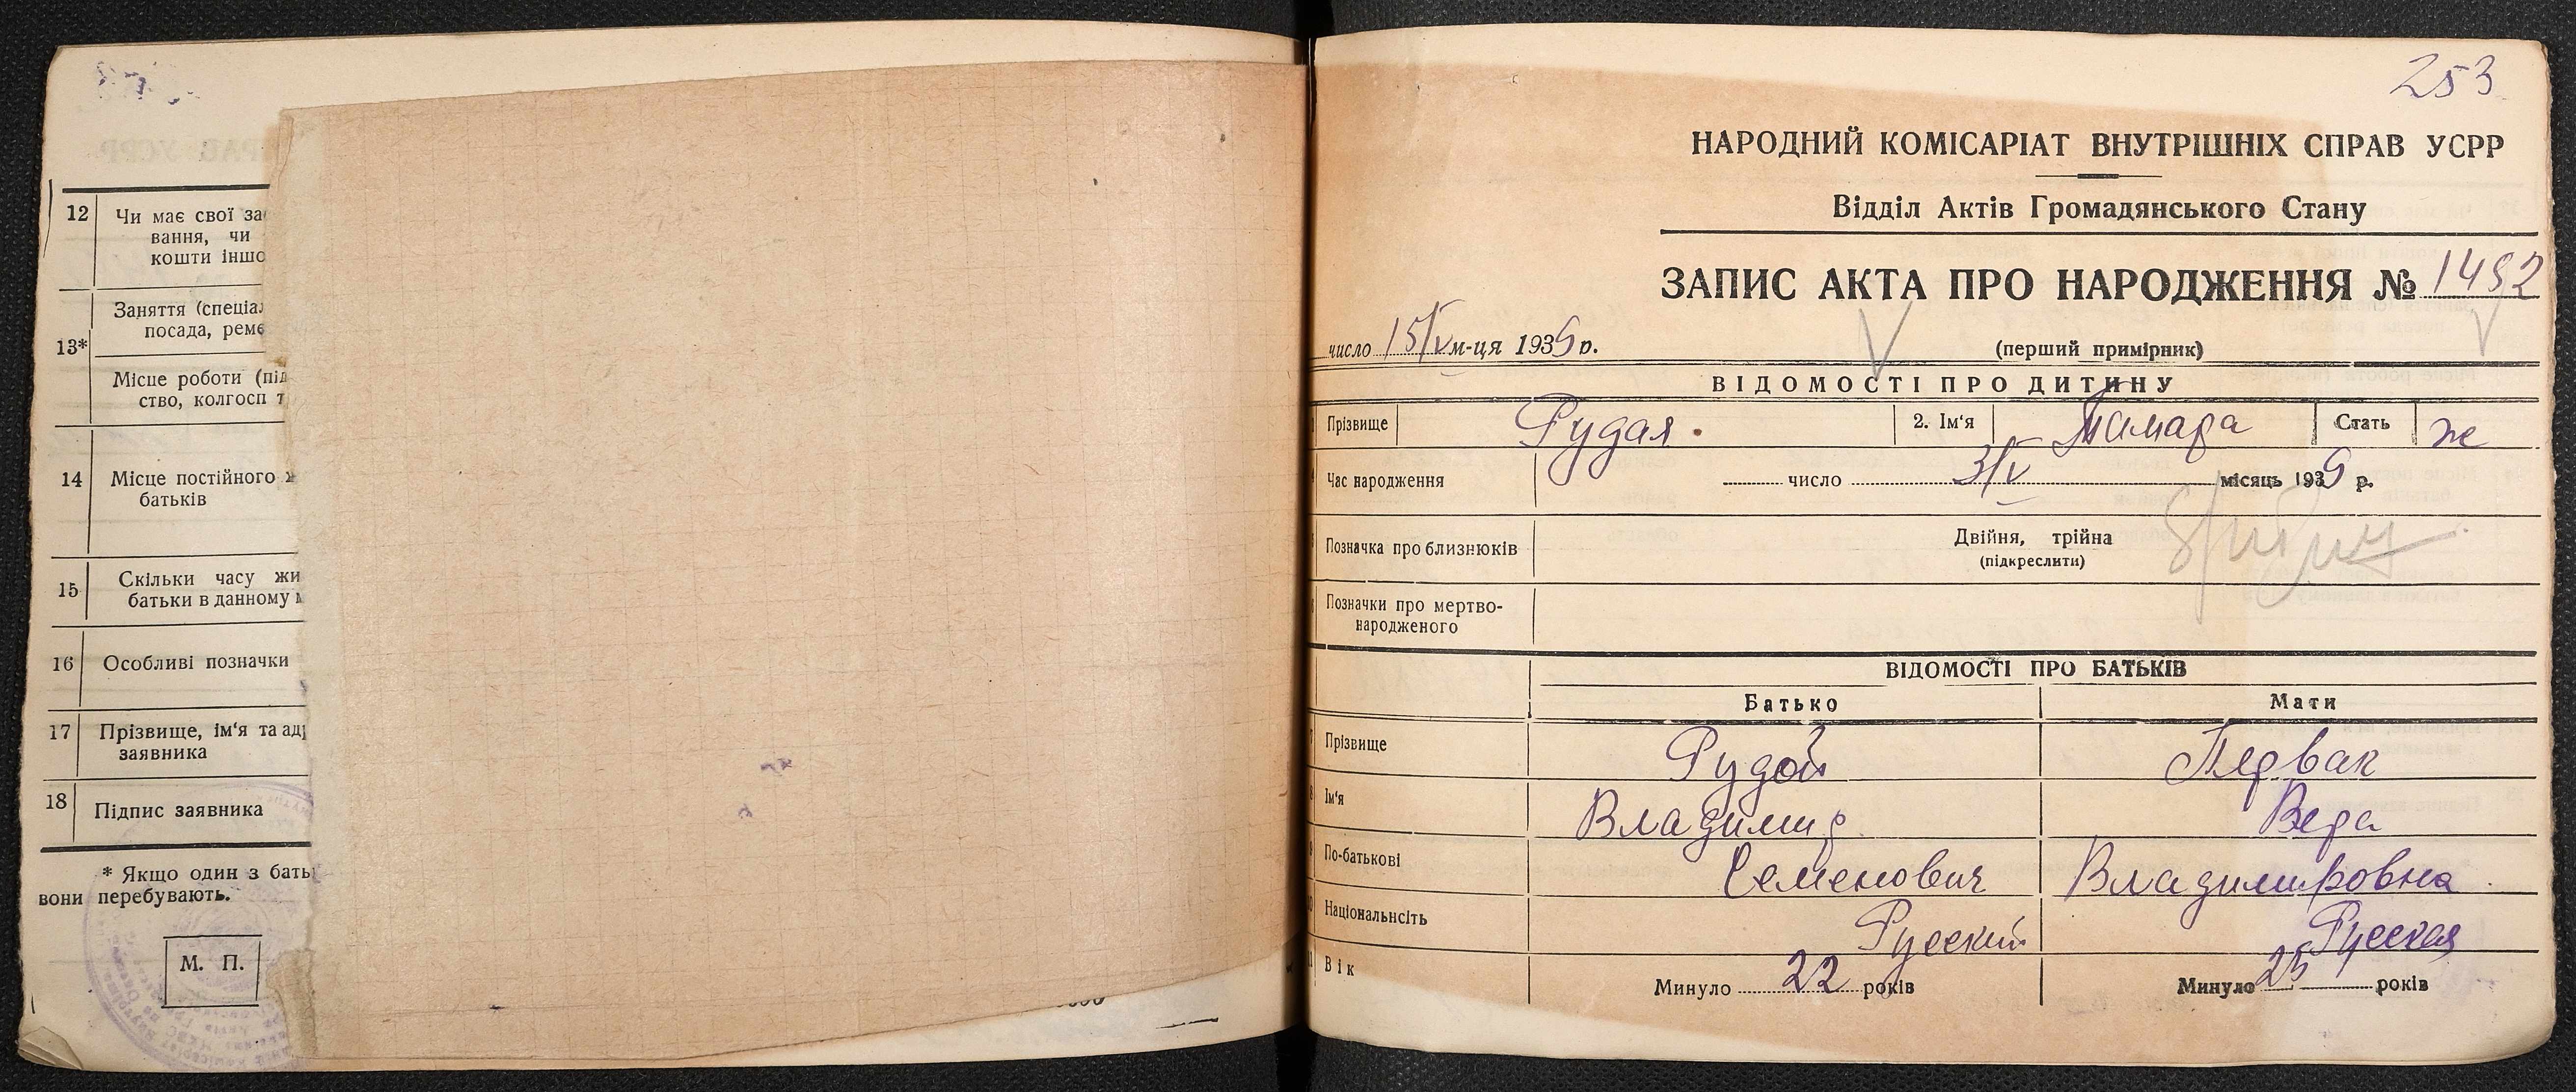 12 Чи має свої за
вання, чи
кошти іншо
13* Заняття (спеціал
посада, реме
Місце роботи (під
ство, колгосп т
14 Місце постійного ж
батьків
15 Скільки часу жи
батьки в данному м
16 Особливі позначки
17 Прізвище, ім‘я та адр
заявника
18 Підпис заявника
* Якщо один з бать
вони перебувають.
М. П.
253
НАРОДНИЙ КОМІСАРІАТ ВНУТРІШНІХ СПРАВ УСРР
Відділ Актів Громадянського Стану
ЗАПИС АКТА ПРО НАРОДЖЕННЯ № 1492
число 15/V м-ця 1936 р.
(перший примірник)
ВІДОМОСТІ ПРО ДИТИНУ
Прізвище Рудая. 2. Ім‘я Тамара Стать ж
Час народження число 3/V місяць 1936 р.
Позначка про близнюків Двійня, трійна
(підкреслити)
Позначки про мертво-
народженого
ВІДОМОСТІ ПРО БАТЬКІВ
Батько Мати
Прізвище Рудой Первак
Ім‘я Владимир Вера
По-батькові Семенович Владимировна
Національнсіть Русский Русская
Вік Минуло 22 років Минуло 25 років